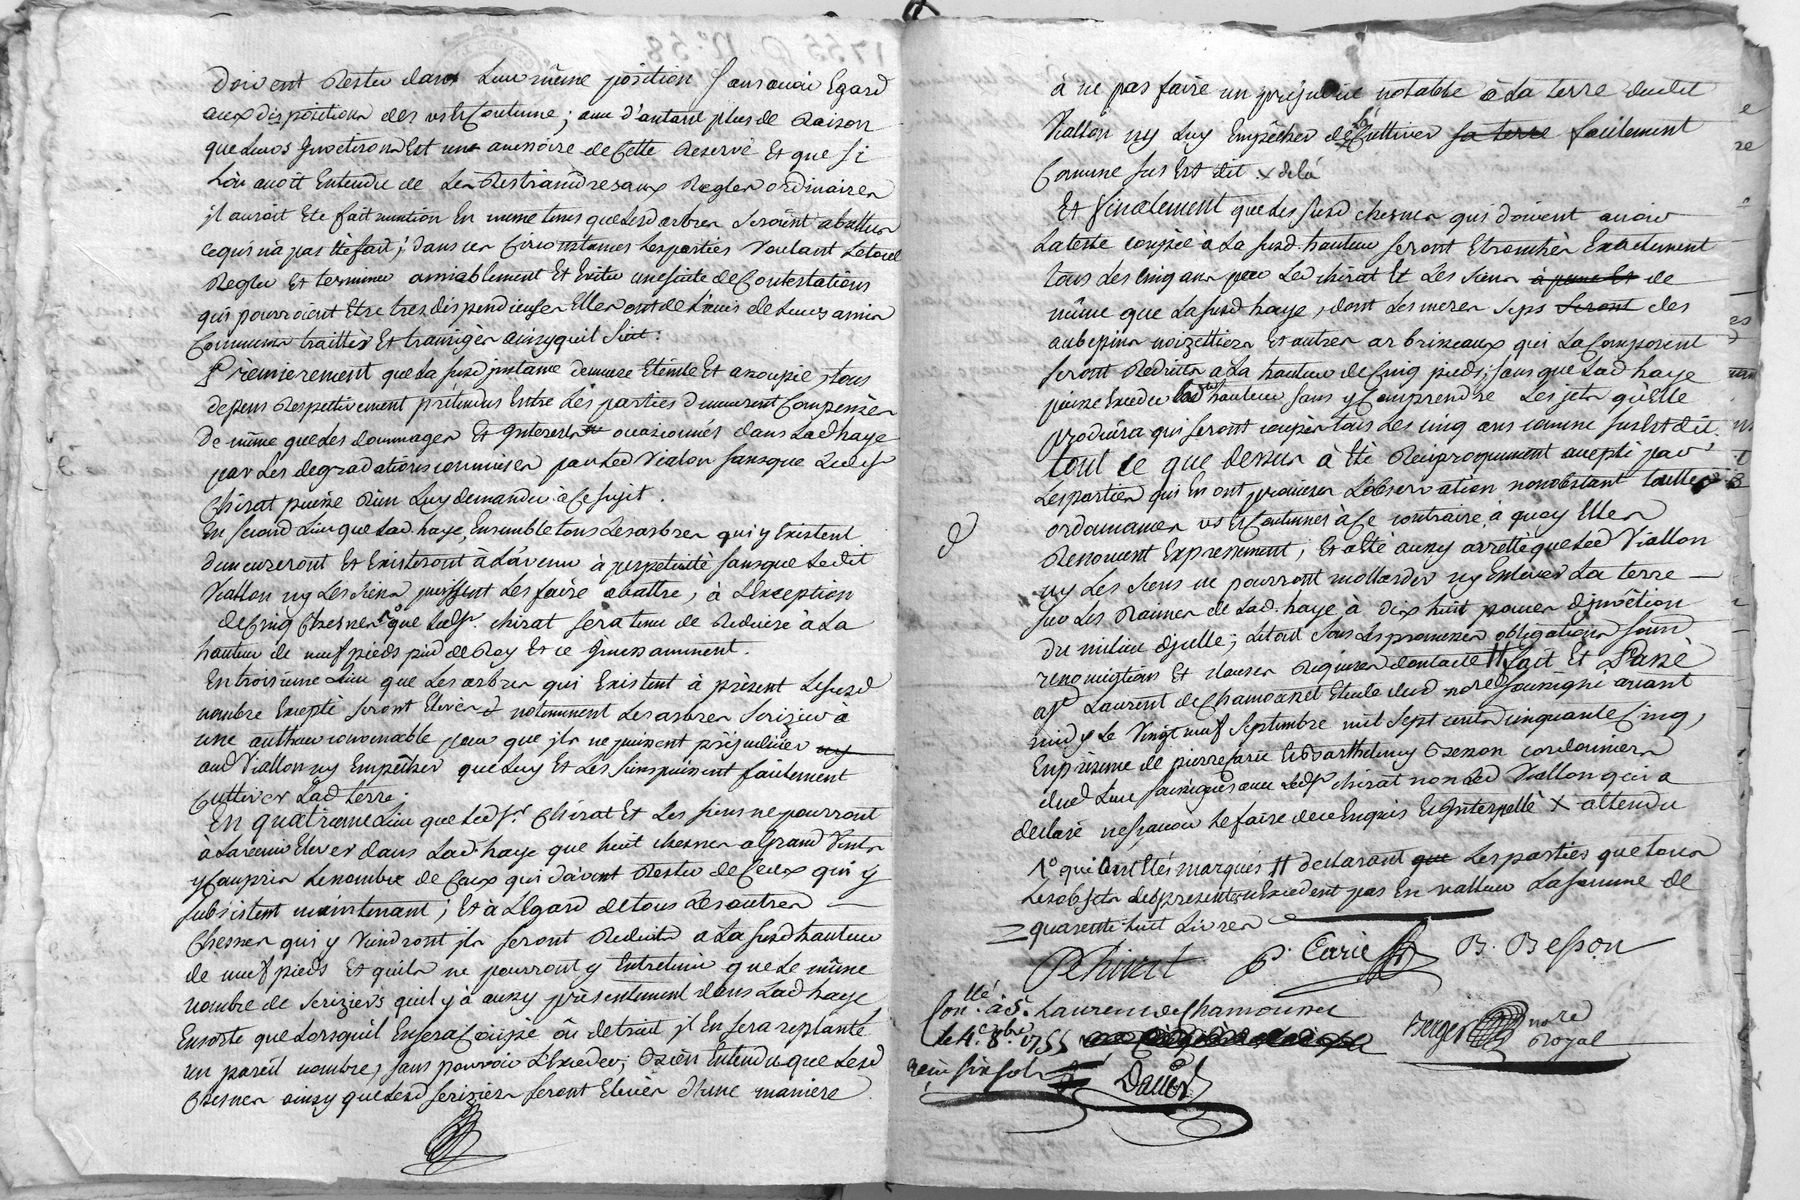 doivent Rester dans Leur même position sans avoir Egard
aux dispositions des us et Coutume; avec d'autant plus de Raison
que Leurs Jnvetison Est une accessoire de Cette Reserve Et que si
Lon avoit Entendu de Les Restraindre aux Regles ordinaires
jl auroit Ete fait mention En meme tems que Lesd arbres seroint abattus
ce qui n'a pas Eté fait; dans ces Circonstances Les parties Voulant Le tout
Regler Et terminer amiablement Et Eviter une suite de Contestations
qui pourroient Etre tres dispendieuses Elles ont de L'avis de Leurs amis
Communs traittés Et transigés ainsy quil suit:
Prèmierement que La susd jnstance demeure Eteinte Et assoupie, tous
depens Respectivement prétendus Entre Les parties demeurent Compensés
de même que Les dommages Et Jnterests occasionnés dans Lad haye
par Les degradations commises par Led Vialon sans que Led sr
Chirat puisse Rien Luy demander à Ce sujet.
En second Lieu que Lad haye, Ensemble tous Les arbres qui y Existent
demeureront Et Existeront à L'avenir à perpetuité sans que Ledit
Viallon ny Les siens puissent Les faire abattre, à L'Exception
de Cinq Chesnes 1° que Led sr. Chirat sera tenu de Reduire à La
hauteur de neuf pieds pied de Roy Et ce Jncessamment.
En troisieme Lieu que Les arbres qui Existent à présent Le susd
nombre Excepté seront Elevés notamment Les arbres serizier à
une autheur convenable pour que jls ne puissent préjudicier ny
aud Viallon ny Empêcher que Luy Et Les siens puissent facilement
Cultiver Lad terre.
En quatrieme Lieu que Led sr. Chirat Et Les siens ne pourront
à Lavenir Elever dans Lad haye que huit chesnes a Grand Vents
y Compris Le nombre de Ceux qui doivent Rester de Ceux qui y
subsistent maintenant; Et à L'Egard de tous Les autres
Chesnes qui y Viendront jls seront Reduits a La susd hauteur
de neuf pieds Et quils ne pourront y Entretenir que Le même
nombre de serizier's quil y à aussy présentement dans Lad haye
Ensorte que Lorsquil En sera Coupé ou detruit jl En sera replanté
un pareil nombre, sans pouvoir L'Exceder; Bien Entendu que Lesd
Chesnes ainsy que Lesd seriziers seront Elevés d'une manière
à ne pas faire un prejudice notable à La terre dudit
Viallon ny Luy Empêcher de La Cultiver sa terre facilement
Comme sus Est dit x dela
Et finalement que Les susd chesnes qui doivent avoir
La teste coupée à La susd. hauteur seront Etronchés Exactement
tous Les Cinq ans par Led chirat Et Les siens à peine Et de
même que La susd haye, dont Les meres seps seront des
aubepins noizettiers Et autres arbrisseaux qui La Composent
seront Reduitts a La hauteur de Cinq pieds; sans que Lad haye
puisse Exceder lad hauteur sans y Comprendre Les jets qu'Elle
produira qui seront coupés tous Les cinq ans comme sus Est dit.
tout ce que dessus à Eté Réciproquement accepté par
Les parties qui En ont promis L'observation nonobstant toutte
ordonnances us Et Coutumes à Ce contraire à quoy Elles
Renoncent Expressement; Et a Eté aussy arretté que Led Viallon
ny Les siens ne pourront mollarder ny Enlever La terre
sur Les Raisnes de Lad. haye à dix huit pouces
du milieu djcelle; Le tout sous Les promesses obligations
renonciations Et clauses Requises dont acte # fait Et Passé
à St Laurent de Chamousset Etude dud nore soussigné avant
midy Le Vingt neuf Septembre mil sept cents cinquante Cinq,
En présence de pierre Carie Et Barthelemy Besson cordonniers
dud Lieu soussignés avec Led sr chirat non Led Viallon qui a
declaré ne sçavoir Le faire de ce Enquis Et Jnterpellé X attendu
1° qui ont Etés marqués # declarant que Les parties que tous
Les objets des presentes n'Excedent pas En valleur La somme de
quarente huit Livres
Chirat P. Carie B. Besson
Con.llé à St. Laurent de Chamousset
le 4e. 8bre 1755
reçu six sols
Berger nore
Royal